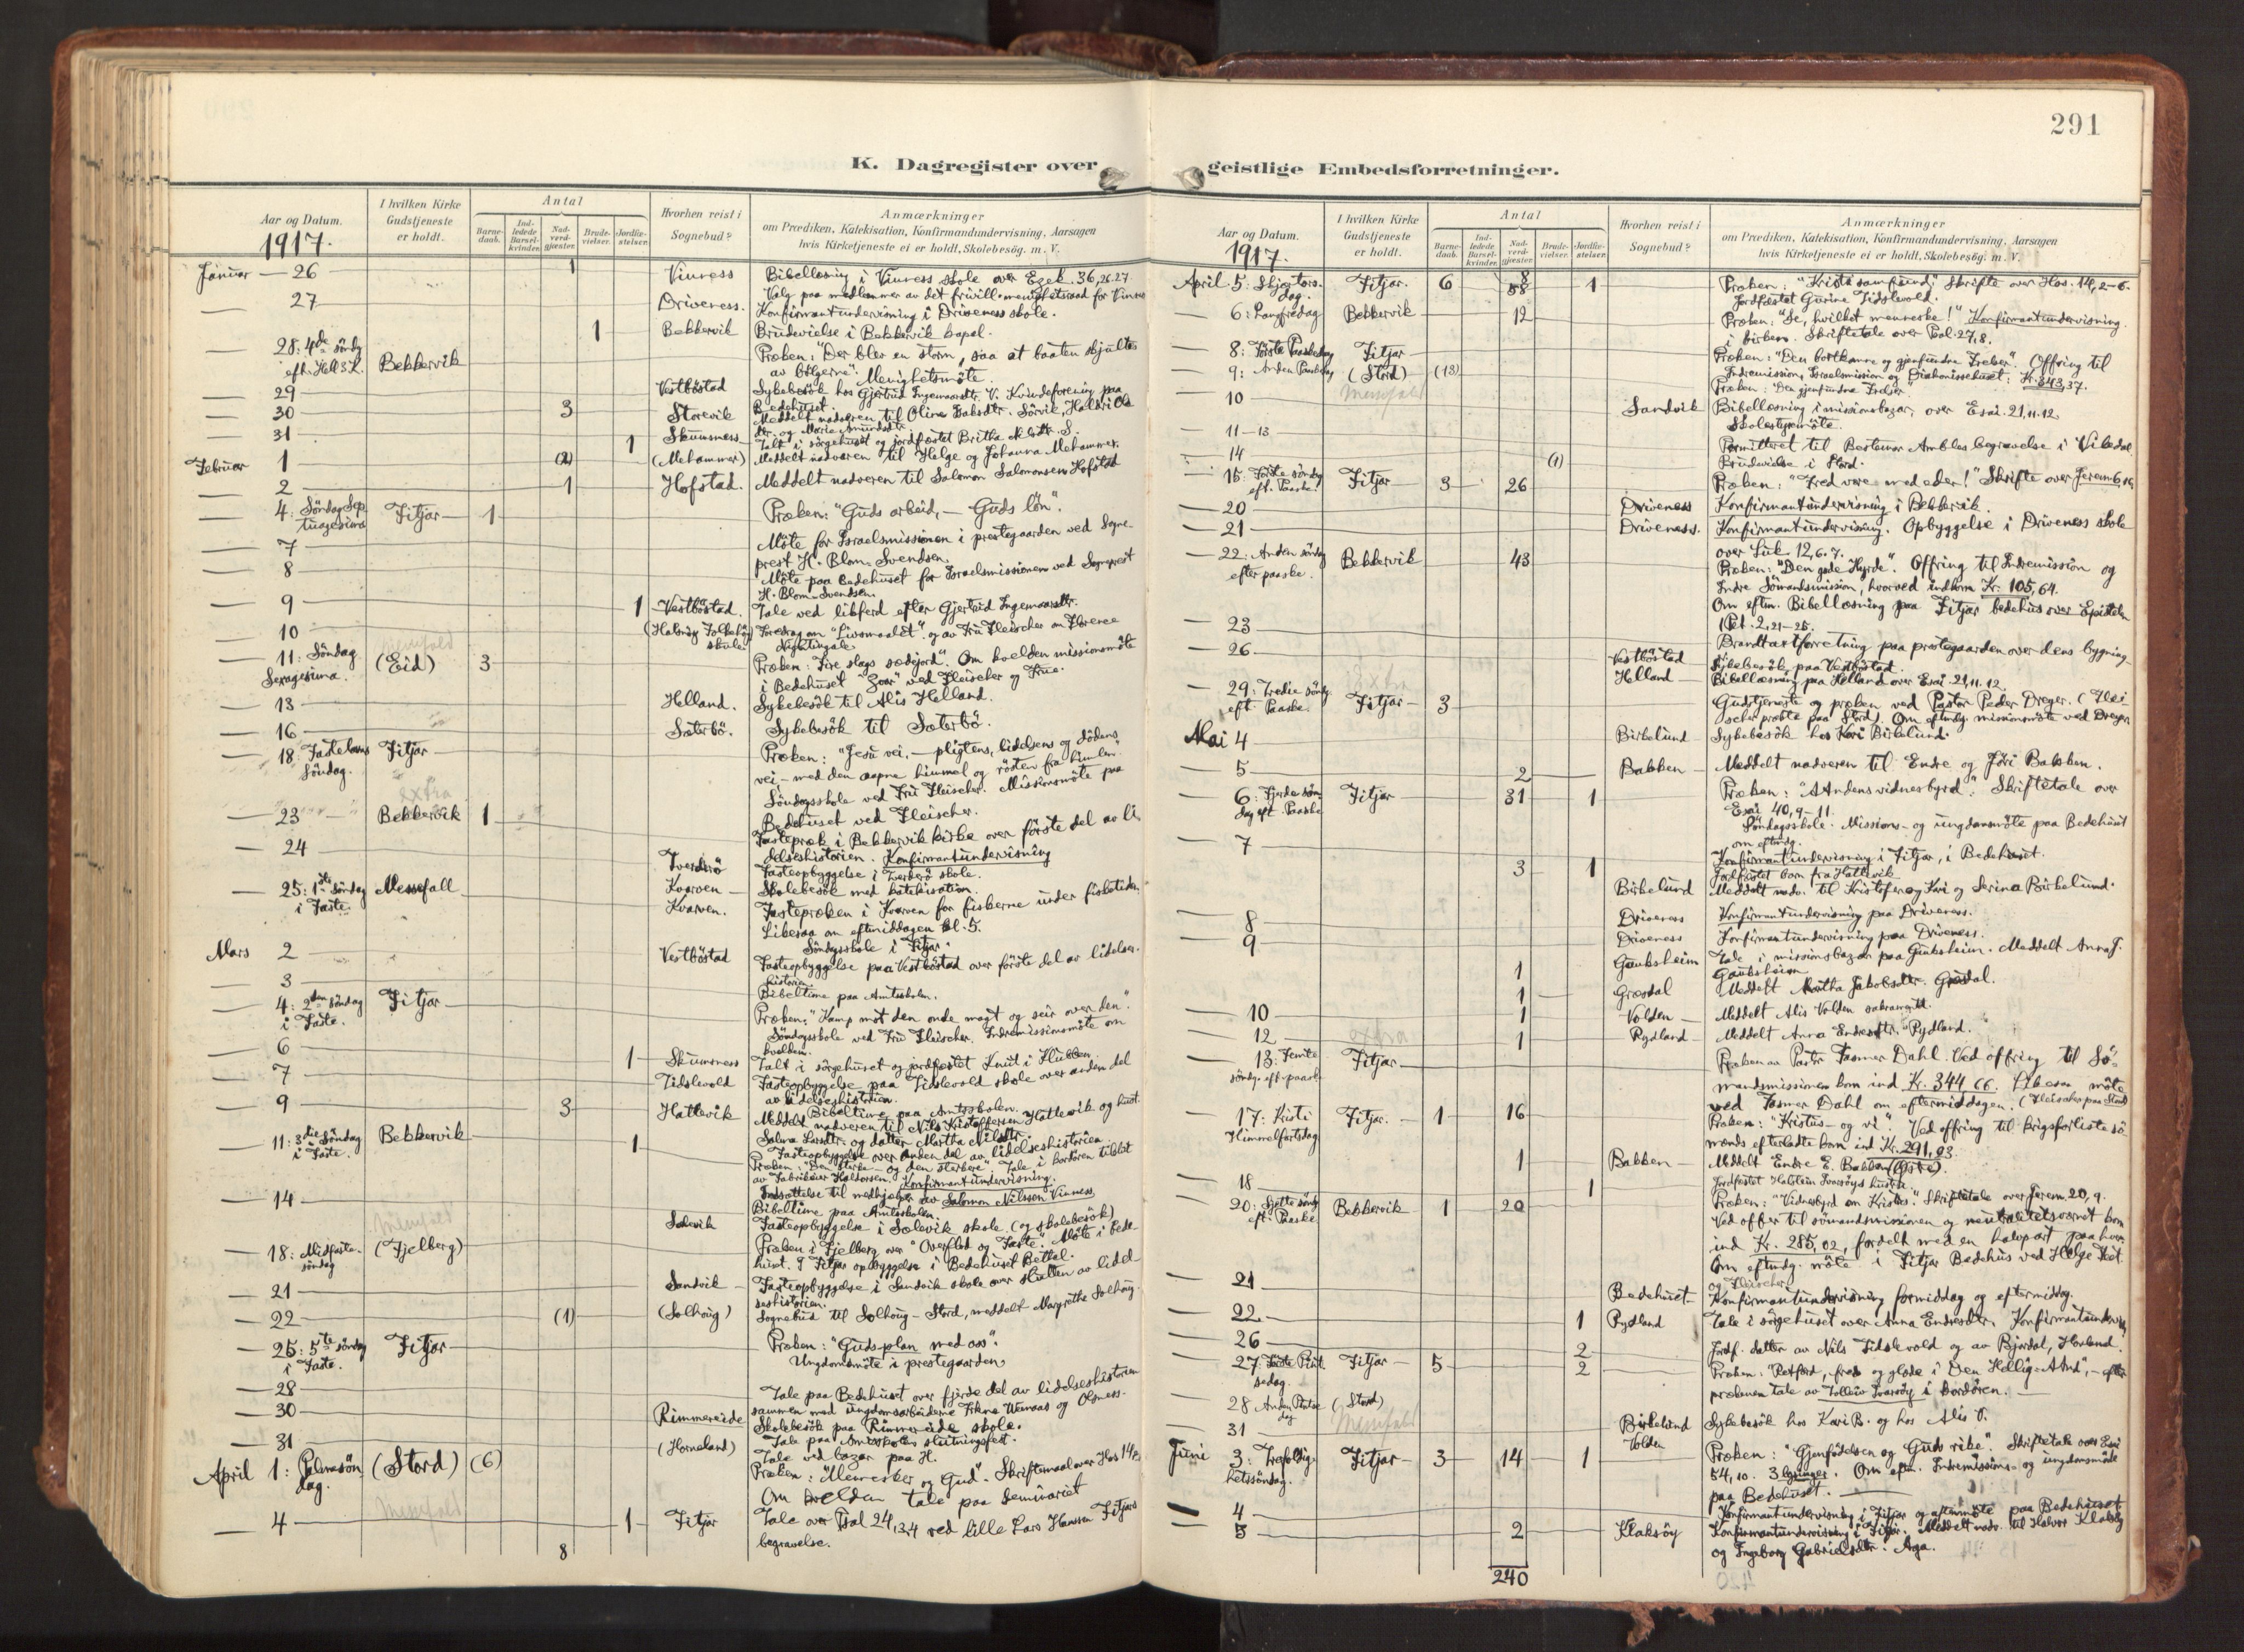 291
K. Dagregister over geistlige Embedsforretninger.
Aar og Datum.
1917.
I hvilken Kirke Gudstjeneste er holdt.
Antal
Barne-daab.
Ind-ledede Barsel-kvinder.
Nad-verd-gjester.
Brude-vielser.
Jordfæ-stelser.
Hvorhen reist i Sognebud?
Anmærkninger
om Prædiken, Katekisation, Konfirmandundervisning, Aarsagen
hvis Kirketjeneste ei er holdt, Skolebesög. m. V.
Januar — 26 1 Vinness Bibellæsning i Vinness skole over Ezek. 36,26.27
Valg paa medlemmer av det frivill. menighetsraad for Vinness
— 27 Driveness. Konfirmantundervisning i Driveness skole.
1 Bekkervik Brudevielse i Bekkervik kapel.
— 28: 4de söndg eft. Hell 3 K. Bekkervik Præken: "Der blev en storm, saa at baaten skjultes
av bölgerne". Menighetsmöte.
— 29 Vestböstad Sykebesök hos Gjertrud Ingemansdtr. V. Kvindeforening paa
Bedehuset.
— 30 3 Storevik Meddelt nadveren til Oline Jaksdtr. Sörvik, Heldri Ols
dtr. og Marie Amundsdtr.
— 31 1 Skumsness Talt i sörgehuset og jordfæstet Britha Nilsdtr. S.
Februar 1 (2) (Mehammer) Meddelt nadveren til Helge og Johanna Mehammer.
— 2 1 Hofstad. Meddelt nadveren til Salomon Salomonsen Hofstad
— 4: Söndag Sep tuagesima Fitjar 1 Præken: "Guds arbeid, — Guds lön".
— 7 Möte for Israelsmissionen i prestegaarden ved Sogne-
prest H. Blom-Svendsen.
— 8 Möte paa Bedehuset for Israelsmissionen ved Sogneprest
H. Blom-Svendsen.
— 9 1 Vestböstad. Tale ved likferd efter Gjertrud Ingemansdtr.
— 10 (Halsnöy Folkehög skule) Foredrag om "Livsmaalet", og av Fru Fleischer om Florence
Nightingale.
— 11: Söndag Sexagesima. (Eid) 3 Præken: "Fire slags sædejord". Om kvelden missionsmöte
i Bedehuset "Zoar" ved Fleischer og Frue.
— 13 Helland. Sykebesök til Alis Helland.
— 16 Sæterbö. Sykebesök til Sæterbö.
— 18 Fastelavns Söndag. Fitjar Præken: "Jesu vei, — pligtens, lidelsens og dödens
vei — med den aapne himmel og rösten fra himlen".
Söndagsskole ved Fru Fleischer. Missionsmöte paa
Bedehuset ved Fleischer.
extra
— 23 Bekkervik 1 Fastepræk i Bekkervik kirke over förste del av li
delseshistorien. Konfirmantundervisning
— 24 Tverderö Fasteopbyggelse i Tverderö skole.
Kvarven — Skolebesök med katekisation.
— 25: 1ste söndag i Faste. Messefall Kvarven. Fastepræken i Kvarven for fiskerne under fisketiden
Likesaa om eftmiddagen kl. 5.
Söndagsskole i Fitjar.
Mars 2 Vestböstad Fasteopbyggelse paa Vestböstad over förste del av lidelses-
historien.
— 3 Bibeltime paa Amtsskolen.
— 4: 2den söndag i Faste. Fitjar Præken: "Kamp mot den onde magt og seir over den".
Söndagsskole ved Fru Fleischer. Indremissionsmöte om
kvelden.
— 6 1 Skumsness Talt i sörgehuset og jordfæstet Knut i Klubben
— 7 Tidslevold Fasteopbyggelse paa Tidslevold skole over anden del
av lidelseshistorien.
Bibeltime paa Amtsskolen.
— 9 3 Hattevik Meddelt nadveren til Nils Kristofferson Hattevik og hust.
Salma Larsdtr. og datter Martha Nilsdtr.
Fasteopbyggelse over anden del av lidelseshistorien
— 11: 3die söndag i Faste. Bekkervik 1 Præken: "Den sterke — og den sterkere". Tale i kordören tilslut
av Fabrikeier Haldorsen. Konfirmantundervisning.
Indsættelse til medhjelper av Salomon Nilssen Vinness
— 14 Bibeltime paa Amtsskolen.
Selevik Fasteopbyggelse i Sælevik skole (og skolebesök)
Messefald
— 18: Midfaste-söndag (Fjelberg) Præken i Fjelberg over "Overflod og Faste". Möte i Bede-
huset. I Fitjar opbyggelse i Bedehuset Bettal.
— 21 Sandvik Fasteopbyggelse i Sandvik skole over slutten av lidel-
seshistorien.
— 22 (1) (Solhoug) Sognebud til Solhoug — Stord, meddelt Margrethe Solhoug.
— 25: 5te söndag i Faste. Fitjar Præken: "Guds plan med oss".
Ungdomsmöte i prestegaarden
— 28 Tale paa Bedehuset over fjerde del av lidelseshistorien
sammen med ungdomsarbeiderne og Olsness.
— 30 Rimmereide Skolebesök paa Rimmereide skole.
— 31 Tale paa Amtsskolens slutningsfest.
(Horneland) Tale ved bazar paa H.
April 1: Palmesön dag. (Stord) (6) Præken: "Mennesker og Gud". Skriftemaal over Hos 14,2
Om kvelden tale paa Seminariet
Messefald
— 4 1 Fitjar Tale over Psal 24,13,4 ved lille Lars Hansen Fitjars
begravelse.
8
Aar og Datum.
1917.
I hvilken Kirke Gudstjeneste er holdt.
Antal
Barne-daab.
Ind-ledede Barsel-kvinder.
Nad-verd-gjester.
Brude-vielser.
Jordfæ-stelser.
Hvorhen reist i Sognebud?
Anmærkninger
om Prædiken, Katekisation, Konfirmandundervisning, Aarsagen
hvis Kirketjeneste ei er holdt, Skolebesög. m. V.
April 5: Skjærtors. dag. Fitjar. 6 8 58 1 Præken: "Kristi samfund". Skrifte over Hos. 14,2-6.
Jordfæstet Gurine Tidslevold.
— 6: Langfredag Bekkervik 12 Præken: "Se, hvilket menneske!" Konfirmantundervisning
i kirken. Skriftetale over Psal. 27,8.
— 8: Förste Paaskedag Fitjar Præken: "Den bortkomne og gjenfundne Frelser". Offring til
Indremission, Israelsmission og Diakonissehuset: Kr. 343,37.
— 9: Anden Paaskedag (Stord) (13) Præken: "Den gjenfundne Frelser".
Messefald
— 10 Sandvik Bibellæsning i missionsbazar, over Esai. 21,11.12.
Skolestyremöte.
— 11-13 Permitteret til Bestemor Ambles begravelse i Vikedal.
— 14 (1) Brudevielse i Stord.
— 15: Förste söndg eft. Paaske. Fitjar 3 26 Præken: "Fred være med eder!" Skrifte over Jerem 6,16
— 20 Driveness Konfirmantundervisning i Bekkervik.
— 21 Driveness. Konfirmantundervisning. Opbyggelse i Driveness skole
over Luk 12,6.7.
— 22: Anden söndg efter paaske. Bekkervik 43 Præken: "Den gode Hyrde". Offring til Indremission og
Indre Sömandsmission, hvorved indkom Kr. 105,64.
Om eftm. Bibellæsning paa Fitjar bedehus over Epistelen
1 Pet. 2,21-25.
— 23 Brandtaxtforretning paa prestegaarden over dens bygning
— 26 Vestböstad Sykebesök paa Vestböstad.
Helland Bibellæsning paa Helland over Esai. 21,11.12
— 29: Tredie söndg. eft. Paaske. Fitjar 3 Gudstjeneste og præken ved Pastor Peder Dreyer. (Flei-
scher prækte paa Stord). Om eftmdg. missionsmöte ved Dreyer
Mai 4 Birkelund Sykebesök hos Kari Birkelund.
— 5 2 Bakken Meddelt nadveren til Endre og Jöri Bakken.
— 6: Fjerde sön dag eft. Paaske Fitjar 31 1 Præken: "Aandens vidnesbyrd". Skriftetale over
Esai. 40,9-11.
Söndagsskole. Missions- og ungdomsmöte paa Bedehuset
om eftmdg.
— 7 Konfirmantundervisning i Fitjar, i Bedehuset.
3 1 Jordfæstet barn fra Hattevik
Birkelund Meddelt nadv. til Kristofer og Kari og Serina Birkelund.
— 8 Driveness Konfirmantundervisning paa Driveness.
— 9 Driveness Konfirmantundervisning paa Driveness.
1 Gauksheim Tale i missionsbazar paa Gauksheim. Meddelt Anna J.
Gauksheim
1 Græsdal Meddelt Martha Jakobsdtr. Græsdal.
— 10 1 Volden Meddelt Alis Volden sakramentt.
— 12 1 Rydland Meddelt Anna Endresdtr. Rydland.
extra
— 13: Femte söndg. eft. paaske Fitjar Præken av Pastr Fasmer Dahl. Ved offring til Sö-
mandsmissionen kom ind Kr. 344,06. Likesaa möte
ved Fasmer Dahl om eftermiddagen. (Fleischer paa Stord)
— 17: Kristi Himmelfartsdag Fitjar. 1 16 Præken: "Kristus — og vi". Ved offring til krigsforliste sö-
mænds efterladte kom ind Kr. 291,03.
1 Bakken Meddelt Endre E. Bakken (Östre).
— 18 1 Jordfæstet Halstein Ivarsöys hustru.
— 20: Sjette söndg eft. Paaske Bekkervik 1 20 Præken: "Vidnesbyrd om Kristus". Skriftetale over Jerem. 20,9.
Ved offer til sömandsmissionen og neutralitetsværnet kom
ind Kr. 285,02, fordelt med en halvpart paa hver.
Om eftmdg. möte i Fitjar Bedehus ved Helge
og Fleischer
— 21 Bedehuset Konfirmantundervisning formiddag og eftermiddag.
— 22 1 Rydland Tale i sörgehuset over Anna Endresdtr. Konfirmantunderv.
— 26 2 Jordf. datter av Nils Tidslevold og av Bjordal, Horland.
— 27: Förste Pint sedag. Fitjar 5 2 Præken: "Retfærd, fred og glæde i Den Hellig-Aand", — efter
prækenen tale av Tollev Ivarsöy i kordören.
— 28 Anden Pintse dag (Stord)
Messefald
— 31 Birkelund Sykebesök hos Kari B. og hos Alis V.
Volden
Juni 3: Trefoldig-hetssöndag. Fitjar 3 14 1 Præken: "Gjenfödelsen og Guds rike". Skriftetale over Esai
54,10. 3 lysninger. Om eftm. Indremissions- og ungdomsmöte
paa Bedehuset.
— 4 Konfirmantundervisning i Fitjar og aftenmöte paa Bedehuset
— 5 2 Klaksöy Konfirmantundervisning i Fitjar. Meddelt nadv. til Halvor Klaksöy
og Ingeborg Gabrielsdtr. Aga.
240